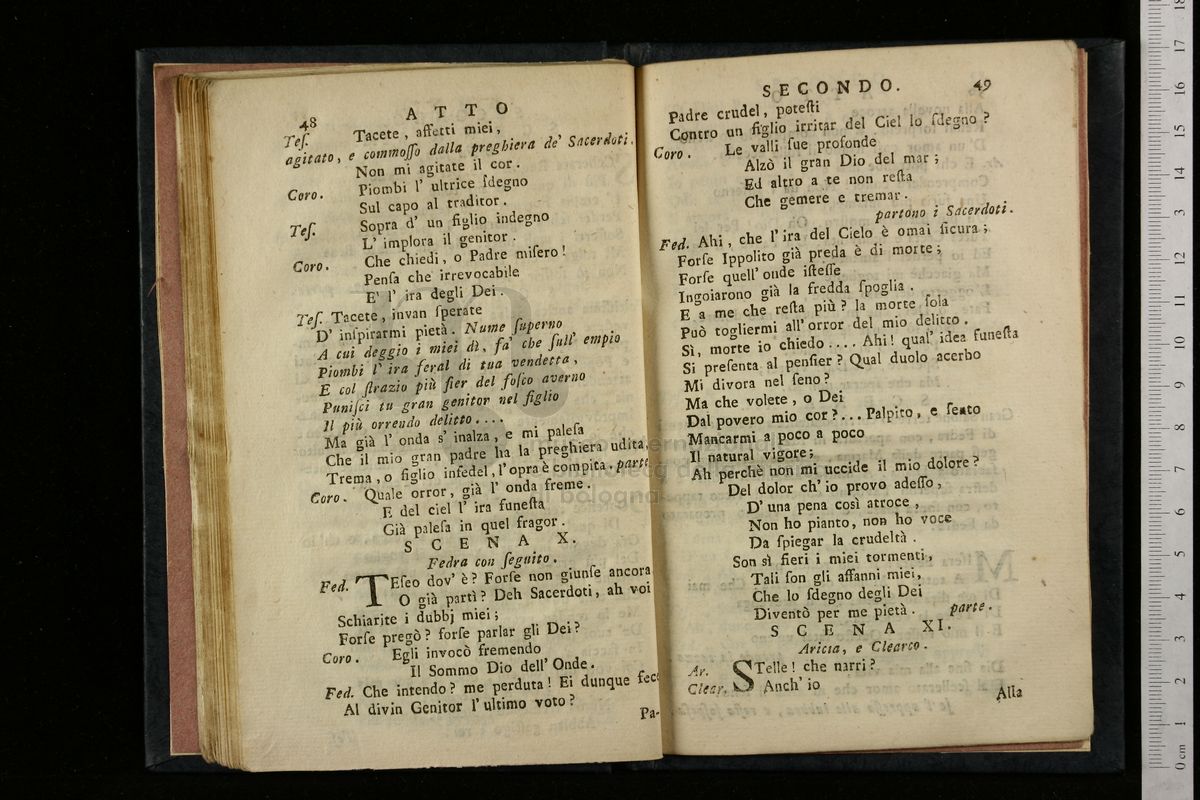 48 ATTO
Teſ. Tacete, affetti miei,
agitato, e commoſſo dalla preghiera de' Sacerdoti.
Non mi agitate il cor.
Coro. Piombi l' ultrice ſdegno
Sul capo al traditor.
Teſ. Sopra d' un figlio indegno
L' implora il genitor.
Coro. Che chiedi, o Padre miſero!
Penſa che irrevocabile
E' l' ira degli Dei.
Teſ. Tacete, invan ſperate
D' inſpirarmi pietà. Nume ſuperno
A cui deggio i miei dì, fa' che ſull' empio
Piombi l' ira feral di tua vendetta,
E col ſtrazio più fier del foſco averno
Puniſci tu gran genitor nel figlio
Il più orrendo delitto....
Ma già l' onda s' inalza, e mi paleſa
Che il mio gran padre ha la preghiera udita.
Trema, o figlio infedel, l'opra è compita. parte
Coro. Quale orror, già l' onda freme.
E del ciel l' ira funeſta
Già paleſa in quel fragor.
SCENA X.
Fedra con ſeguito.
Fed. TEſeo dov' è? Forſe non giunſe ancora
O già partì? Deh Sacerdoti, ah voi
Schiarite i dubbj miei;
Forſe pregò? forſe parlar gli Dei?
Coro. Egli invocò fremendo
Il Sommo Dio dell' Onde.
Fed. Che intendo? me perduta! Ei dunque fece
Al divin Genitor l'ultimo voto?
Pa-
SECONDO. 49
Padre crudel, poteſti
Contro un figlio irritar del Ciel lo ſdegno?
Coro. Le valli ſue profonde
Alzò il gran Dio del mar;
Ed altro a te non reſta
Che gemere e tremar.
partono i Sacerdoti.
Fed. Ahi, che l'ira del Cielo è omai ſicura;
Forſe Ippolito già preda è di morte;
Forſe quell' onde iſteſſe
Ingoiarono già la fredda ſpoglia.
E a me che reſta più? la morte ſola
Può togliermi all' orror del mio delitto.
Sì, morte io chiedo.... Ahi! qual' idea funeſta
Si preſenta al penſier? Qual duolo acerbo
Mi divora nel ſeno?
Ma che volete, o Dei
Dal povero mio cor?... Palpito, e ſento
Mancarmi a poco a poco
Il natural vigore;
Ah perchè non mi uccide il mio dolore?
Del dolor ch' io provo adeſſo,
D' una pena così atroce,
Non ho pianto, non ho voce
Da ſpiegar la crudeltà.
Son sì fieri i miei tormenti,
Tali ſon gli affanni miei,
Che lo ſdegno degli Dei
Diventò per me pietà. parte.
SCENA XI.
Aricia, e Clearco.
Ar. STelle! che narri?
Clear. Anch' io
Alla